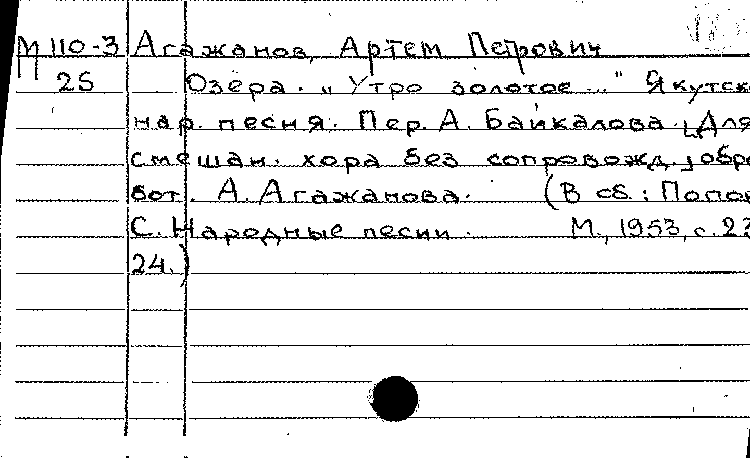 М 110-3 Агажанов, Артем Петрович
П 25 Озера. „Утро золотое..." Якутск
нар. песня. Пер. А. Байкалова. [Для
смешан. хора без сопровожд.] обра
бот. А. Агажанова. (В сб.: Попов
С. Народные песни. М., 1953, с. 23
24.)